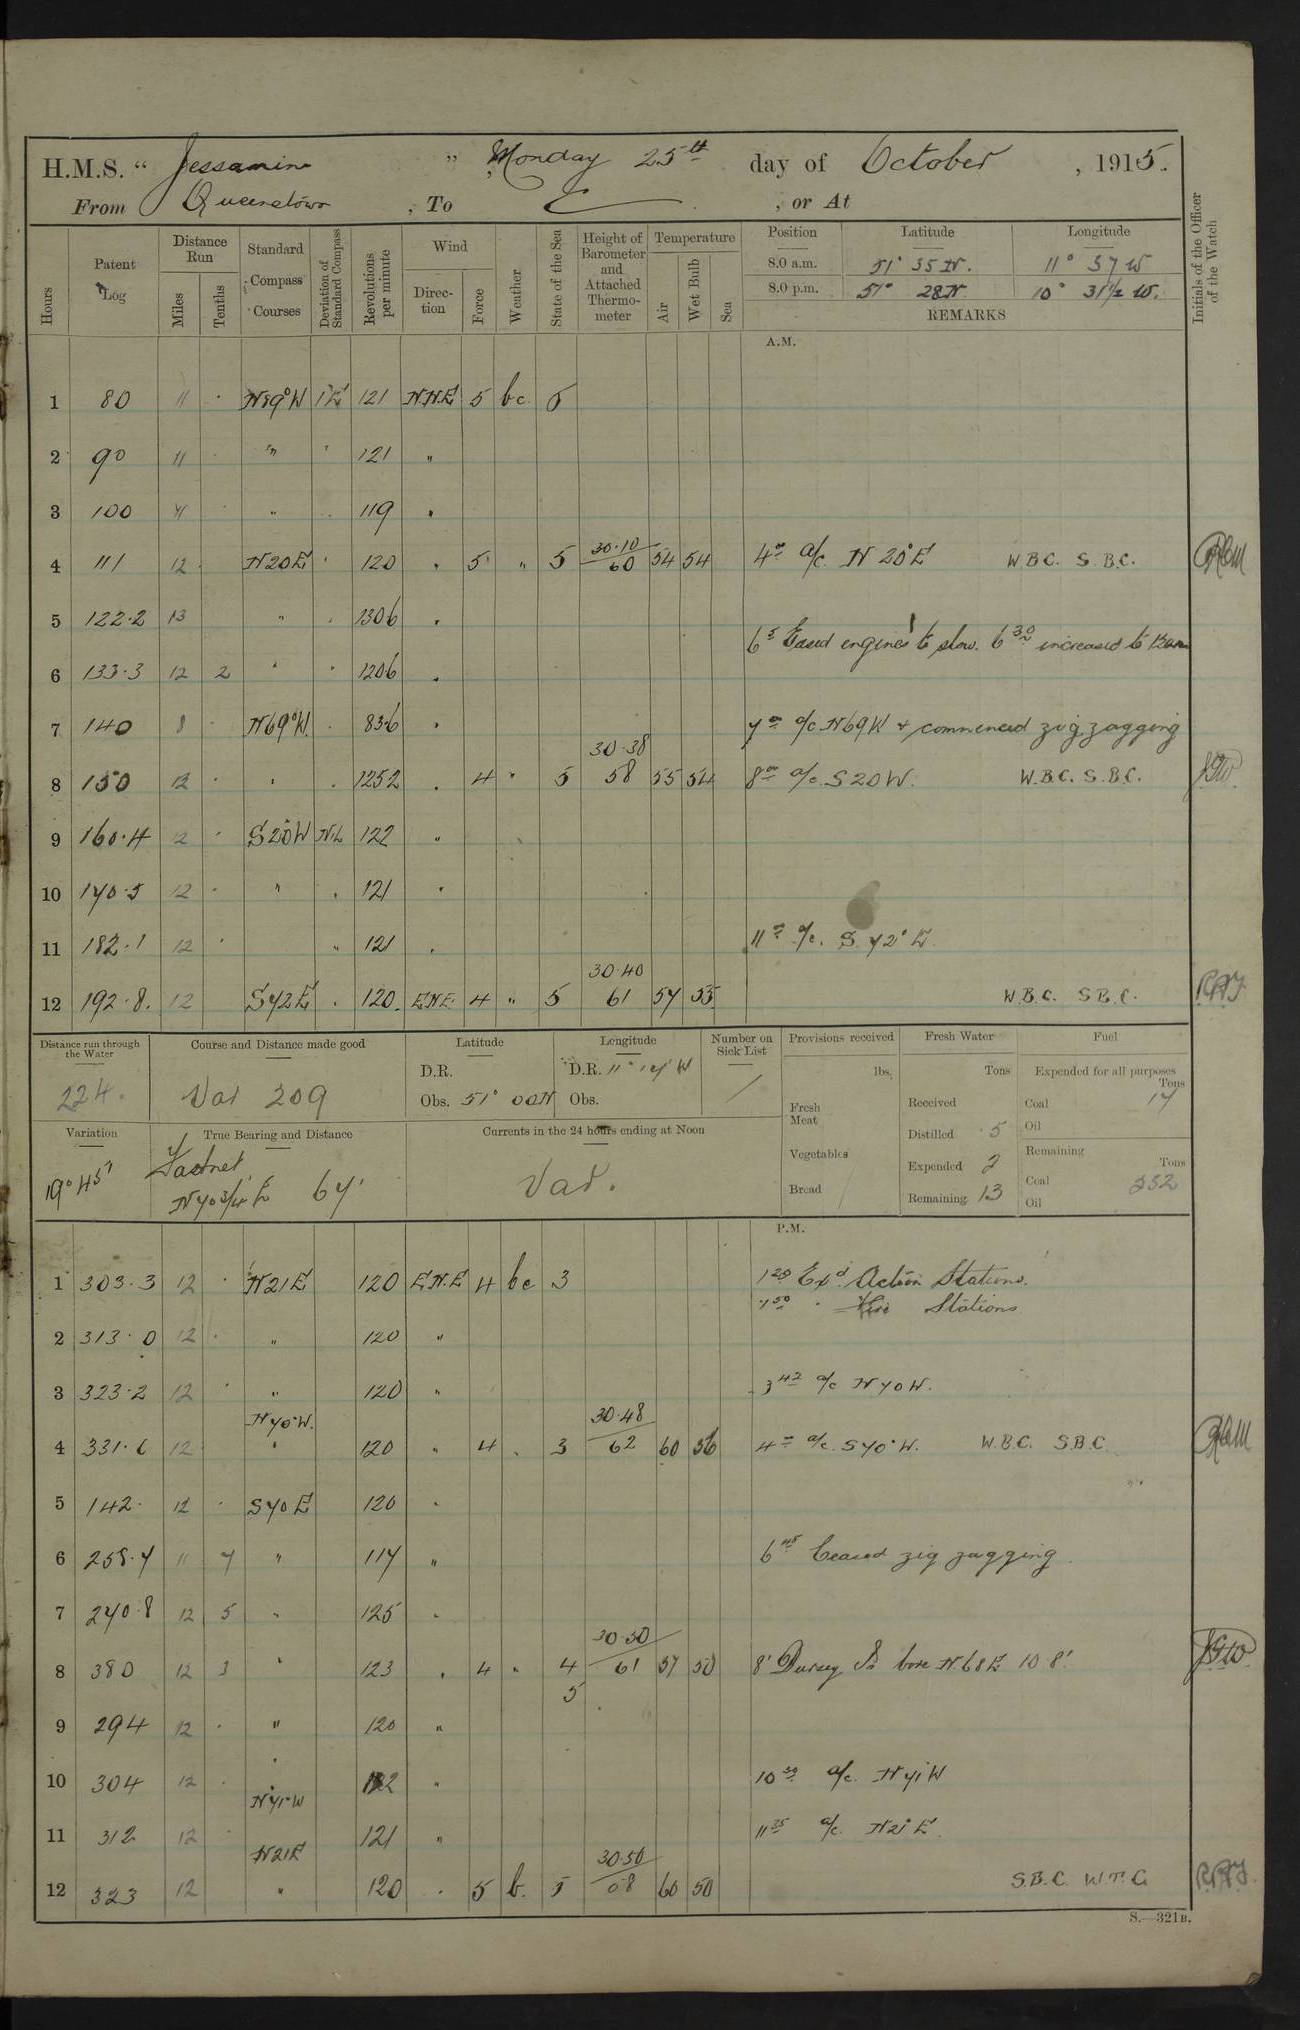 H.M.S. “ Jessamine ” , Monday 25th day of October , 1915.
From Queenstown , To , or At
Hours
Patent Log
Distance Run
Miles
Tenths
Standard Compass Courses
Deviation of Standard Compass
Revolutions per minute
Wind
Direction
Force
Weather
State of the Sea
Height of Barometer and Attached Thermometer
Temperature
Air
Wet Bulb
Sea
Position Latitude Longitude
8.0 a.m. 51° 35 N. 11° 37 W
8.0 p.m. 51° 28 N. 10° 31½ W.
REMARKS
Initials of the Officer of the Watch
A.M.
1 80 11 N89°W 1°E 121 N.N.E 5 bc 5
2 90 11 " " 121 "
3 100 11 " " 119 "
30·10
4 111 12 N20E " 120 " 5 " 5 60 54 54 4 a/c N 20°E W.B.C. S.B.C.
5 122·2 13 " " 130·6 "
6 5 Eased engines to slow. 6 30 increased to
6 133·3 12 2 " " 120·6 "
7 140 8 N69°W. " 83·6 " 7 a/c N69W & commenced zig zagging
30·38
8 150 12 " " 125·2 " 4 " 5 58 55 54 8 a/c S20W. W.B.C. S.B.C.
9 160·4 12 S20W NL 122 "
10 170·5 12 " " 121 "
11 182·1 12 " 121 " 11 a/c. S. 72° E.
30·40
12 192·8. 12 S72E " 120. ENE. 4 " 5 61 57 55 W.B.C. S.B.C.
Distance run through the Water
224.
Course and Distance made good
Var 209
Latitude
D.R.
Obs. 51° 00N
Longitude
D.R. 11° 14' W
Obs.
Number on Sick List
Provisions received
lbs.
Fresh Meat
Vegetables
Bread
Fresh Water
Tons
Received
Distilled 5
Expended 2
Remaining 13
Fuel
Expended for all purposes
Tons
Coal 17
Oil
Remaining
Tons
Coal 232
Oil
Variation
19° 45'
True Bearing and Distance
Fastnet
N70¾E 67'
Currents in the 24 hours ending at Noon
Var.
P.M.
1 303·3 12 N21E 120 E.N.E 4 bc 3 Exd Action Stations.
" Fire Stations
2 313·0 12 " 120 "
3 323·2 12 " 120 " 3 42 a/c N70W.
N70°W. 30·48
4 331·6 12 " 120 " 4 " 3 62 60 56 4 a/c. S70°W. W.B.C. S.B.C.
5 142· 12 S70E 120 "
6 258·7 11 7 " 117 " 6 45 Ceased zig zagging.
7 270·8 12 5 " 125 "
30·50
8 380 12 3 " 123 " 4 " 4 61 57 50 8' Dursey Is bore N.68E 10·8'
5
9 294 12 " 120 "
10 304 12 " 122 " 10 30 a/c. N71°W
N71°W
11 312 12 121 " 11 35 a/c. N21°E.
N21E 30·50
12 323 12 " 120 " 5 b. 5 58 60 50 S.B.C. W.T.C.
S.—321B.